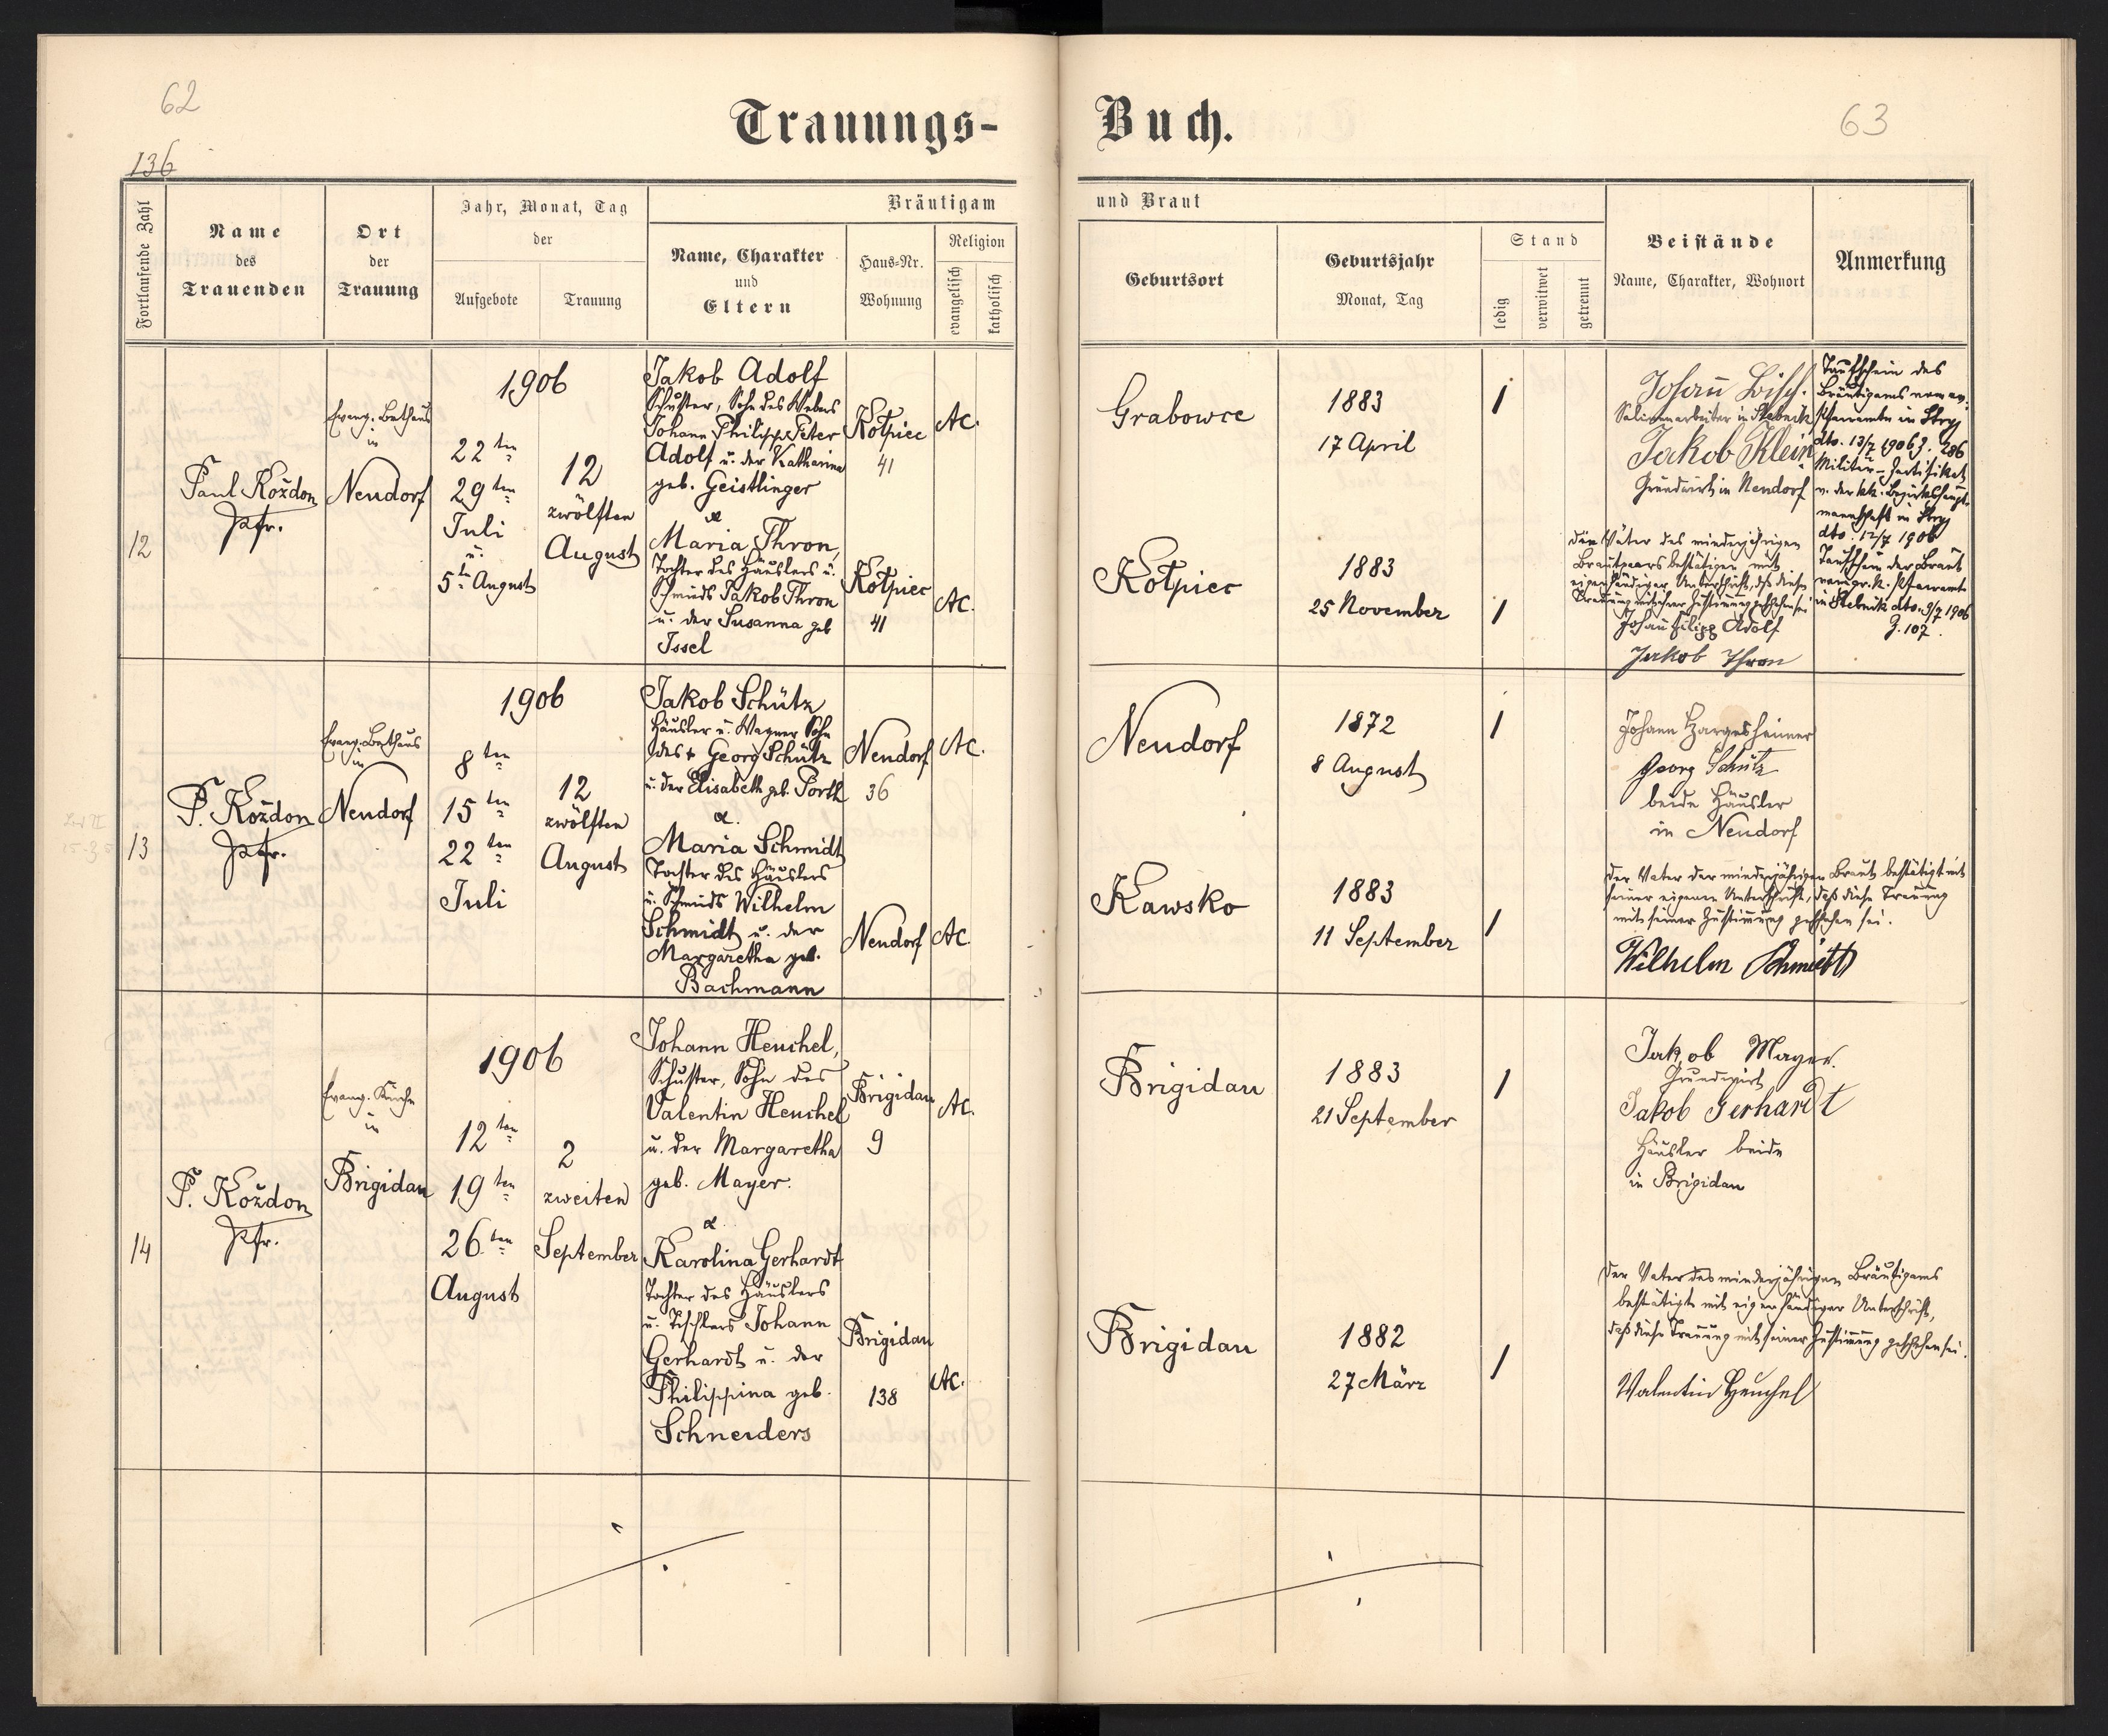 62
136
Trauungs-
Fortlaufende Zahl
Name
des
Trauenden
Ort
der
Trauung
Jahr, Monat, Tag
der
Aufgebote
Trauung
Bräutigam
Name, Charakter
und
Eltern
Haus-Nr.
Wohnung
Religion
evangelisch
katholisch
12
Paul Koždon
Pfr.
Evang. Bethaus
in
Neudorf
1906
22ten
29ten
Juli
u.
5ten August
12
zwölften
August
Jakob Adolf
Schuster, Sohn des Webers
Johann Philipp Peter
Adolf u. der Katharina
geb. Geistlinger
&
Maria Thron,
Tochter des Häuslers u.
Schmieds Jakob Thron
u. der Susanna geb
Issel
Kołpiec
41
AC.
Kołpiec
41
AC.
13
P. Koždon
Pfr.
Evang. Bethaus
in
Neudorf
1906
8ten
15ten
22ten
Juli
12
zwölften
August
Jakob Schütz
Häusler u. Wagner Sohn
des + Georg Schütz
u. der Elisabeth geb. Porth
&.
Maria Schmidt
Tochter des Häuslers
u. Schmieds Wilhelm
Schmidt u. der
Margaretha geb.
Bachmann
Neudorf
36
AC.
Neudorf
AC.
14
P. Koždon
Pfr.
Evang. Kirche
in
Brigidau
1906
12ten
19ten
26ten
August
2
zweiten
September
Johann Heuchel,
Schuster, Sohn des
Valentin Heuchel
u. der Margaretha
geb. Mayer.
&
Karolina Gerhardt
Tochter des Häuslers
u. Tischlers Johann
Gerhardt u. der
Philippina geb.
Schneiders
Brigidau
9
AC.
Brigidau
138
AC.
63
Buch.
und Braut
Geburtsort
Geburtsjahr
Monat, Tag
Stand
ledig
verwitwet
getrennt
Beistände
Name, Charakter, Wohnort
Anmerkung
Grabowce
1883
17 April
1
Johann
Salinenarbeiter in Stebnik
Jakob Klein
Grundwirt in Neudorf
Taufschein des
Bräutigams vom ev.
Pfarramte in Stryj
dto. 13/7 1906 Z. 286
Militär-Zertifikat
v. der kk. Bezirkshaupt-
mannschaft in Stryj
dto. 12/7 1906
Taufschein der Braut
vom gr. k. Pfarramte
in Stebnik dto. 9/7 1906
Z. 107.
Kołpiec
1883
25 November
1
Die Väter des minderjährigen
Brautpaars bestätigen mit
eigenhändiger Unterschrift, daß diese
Trauung mit ihrer Zustimmung geschehen sei
Johann Filipp Adolf
Jakob Thron
Neudorf
1872
8 August
1
Johann Hargesheimer
Georg Schütz
beide Häusler
in Neudorf
Kawsko
1883
11 September
1
Der Vater der minderjährigen Braut bestätigt mit
seiner eigenen Unterschrift, daß diese Trauung
mit seiner Zustimmung geschehen sei.
Wilhelm Schmidt
Brigidau
1883
21 September
1
Jakob Mayer.
Grundwirt
Jakob Gerhardt
Häusler beide
in Brigidau
Brigidau
1882
27 März
1
Der Vater des minderjährigen Bräutigams
bestätigt mit eigenhändiger Unterschrift,
daß diese Trauung mit seiner Zustimmung geschehen sei.
Valentin Heuchel